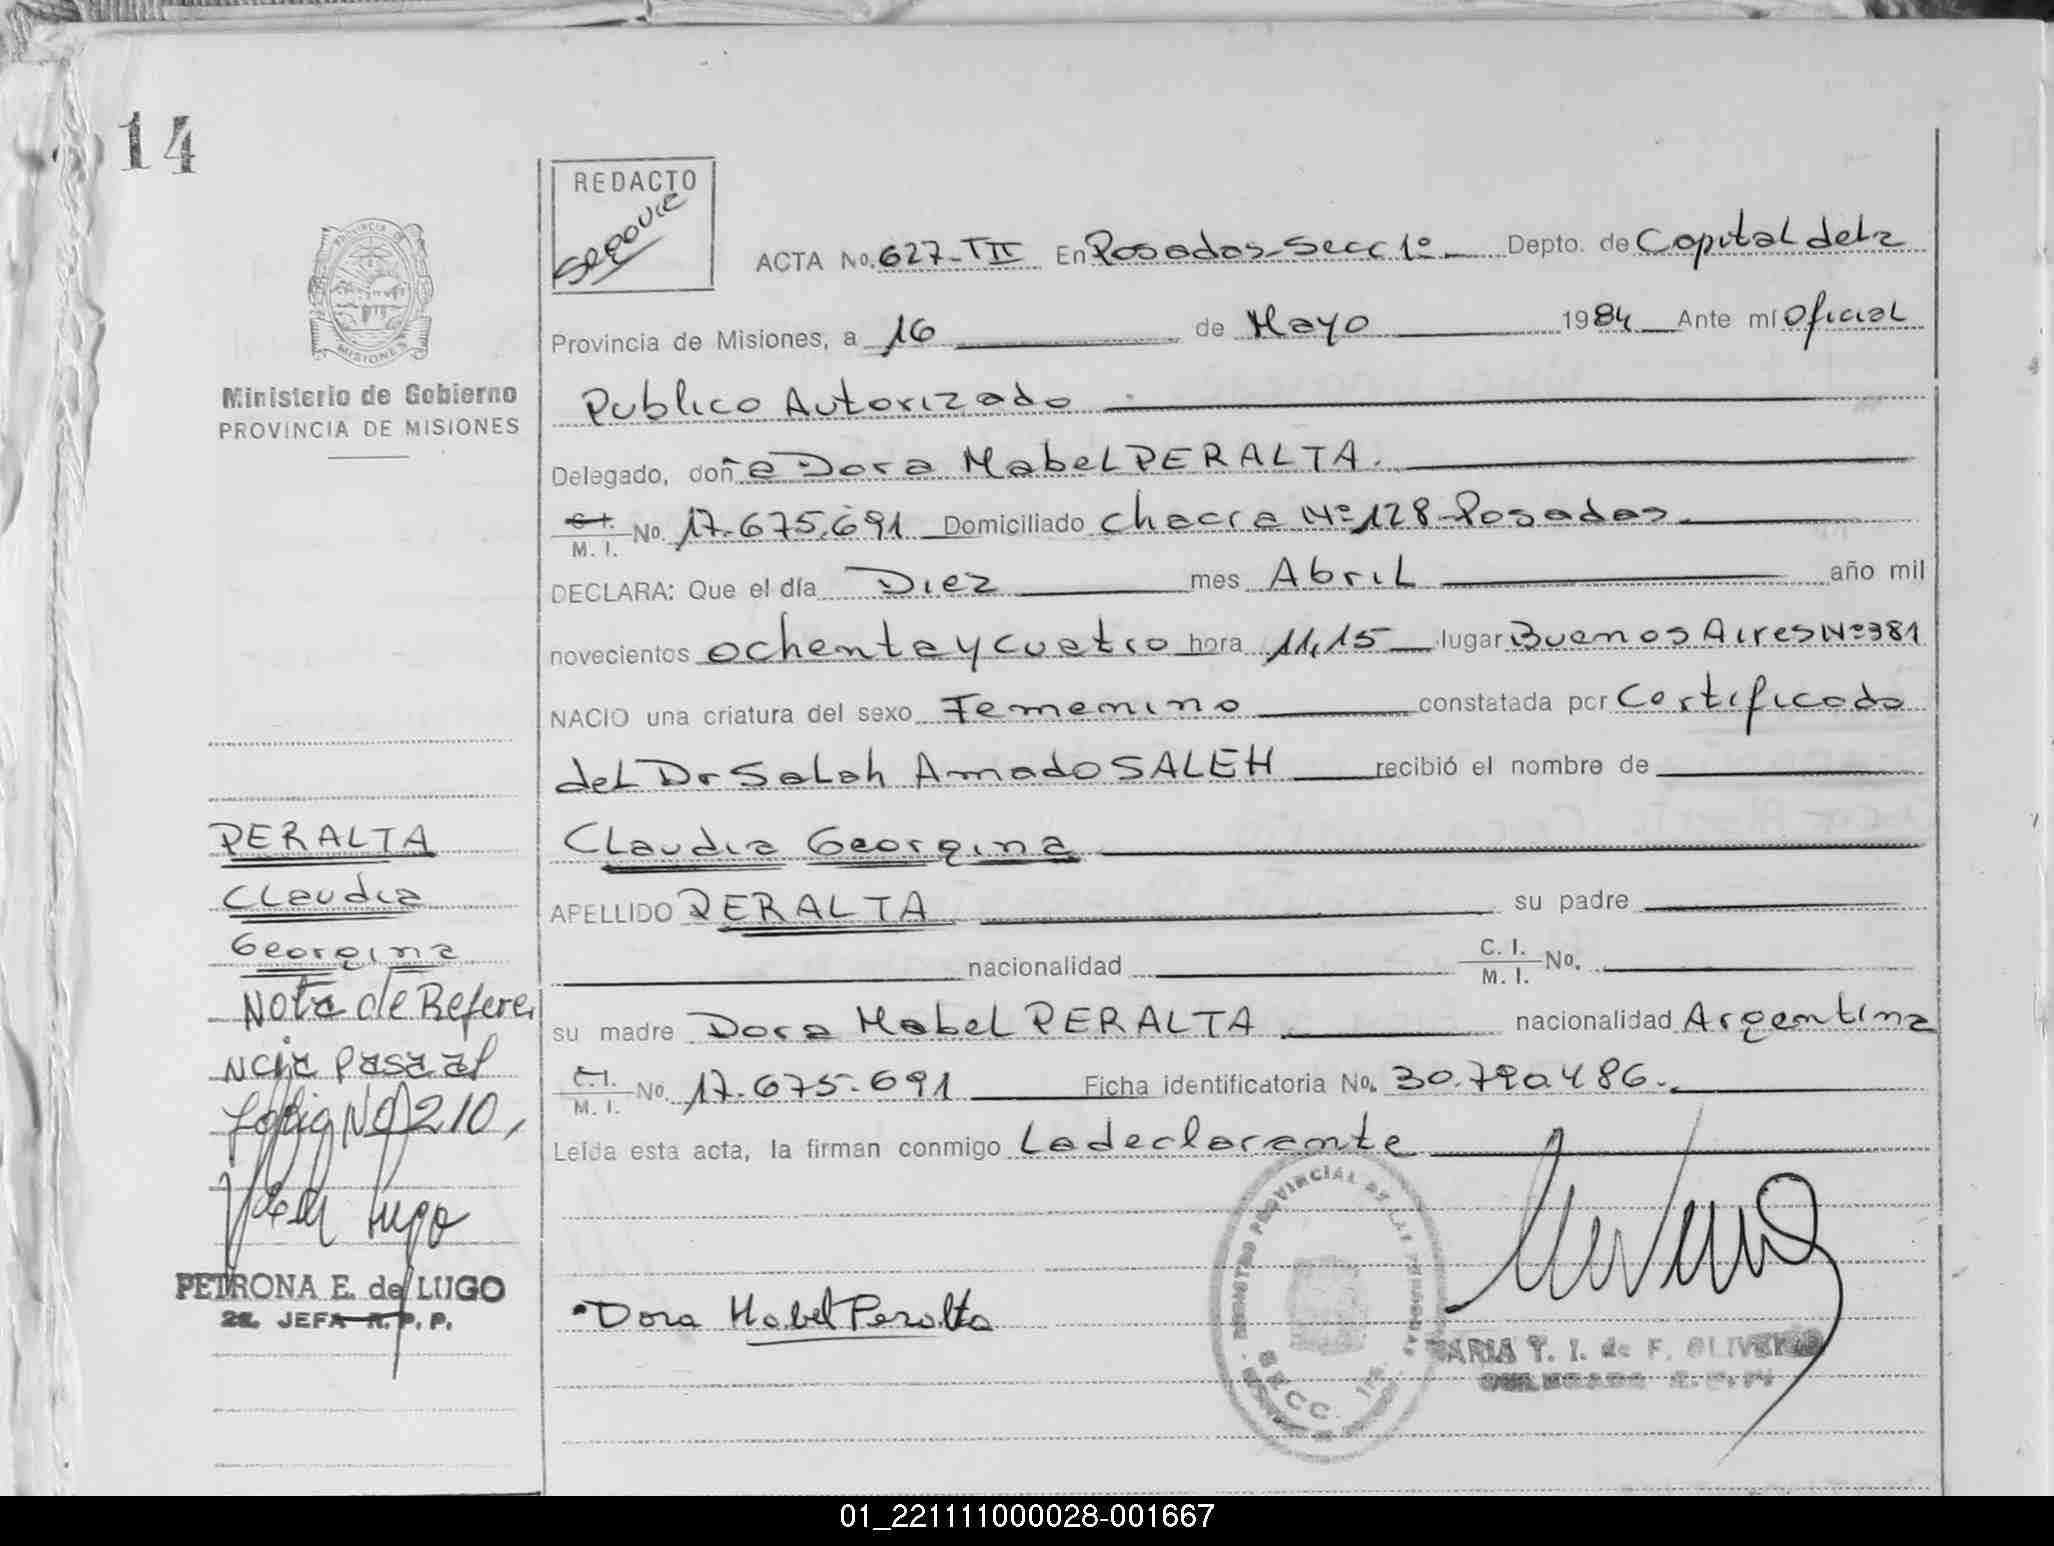 14
REDACTO
Segovia
ACTA No. 627-TII En Posadas-Secc 1º Depto. de Capital de la
Provincia de Misiones, a 16 de Mayo 1984 Ante mí Oficial
Ministerio de Gobierno
PROVINCIA DE MISIONES
Publico Autorizado
Delegado, doña Dora Mabel PERALTA.
C.I. M. I. No. 17.675.691 Domiciliado Chacra Nº 128-Posadas
DECLARA: Que el día Diez mes Abril año mil
novecientos ochenta y cuatro hora 11,15 lugar Buenos Aires Nº 381
NACIO una criatura del sexo Femenino constatada por Certificado
del Dr Salah Amado SALEH recibió el nombre de
Claudia Georgina
APELLIDO PERALTA su padre
nacionalidad C. I. M. I. No.
su madre Dora Mabel PERALTA nacionalidad Argentina
C.I. M. I. No. 17.675.691 Ficha identificatoria No. 30.790.486.
Leída esta acta, la firman conmigo La declarante
PERALTA
Claudia
Georgina
Nota de Refere
ncia Pasa al
Folio Nº 210,
Lugo
PETRONA E. de LUGO
2a. JEFA R. P. P.
Dora Mabel Peralta
REGISTRO PROVINCIAL DE LAS PERSONAS
SECC. 1ra.
MARIA T. I. de F. OLIVEIRA
01_221111000028-001667